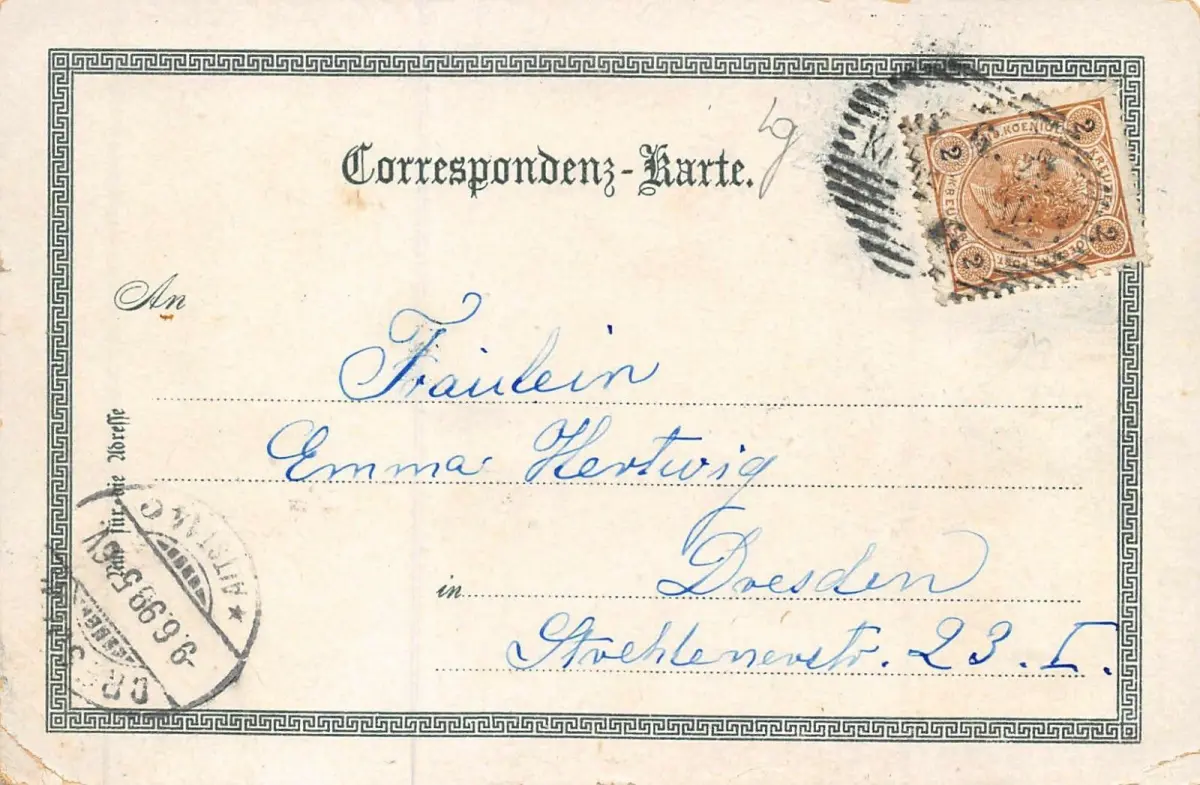 Correspondenz-Karte.
An
Fräulein
Emma Hertwig
in Dresden
Strehlenerstr. 23. I.
Nur für die Adresse
ALTST.
9.6.99
2 2
2 2